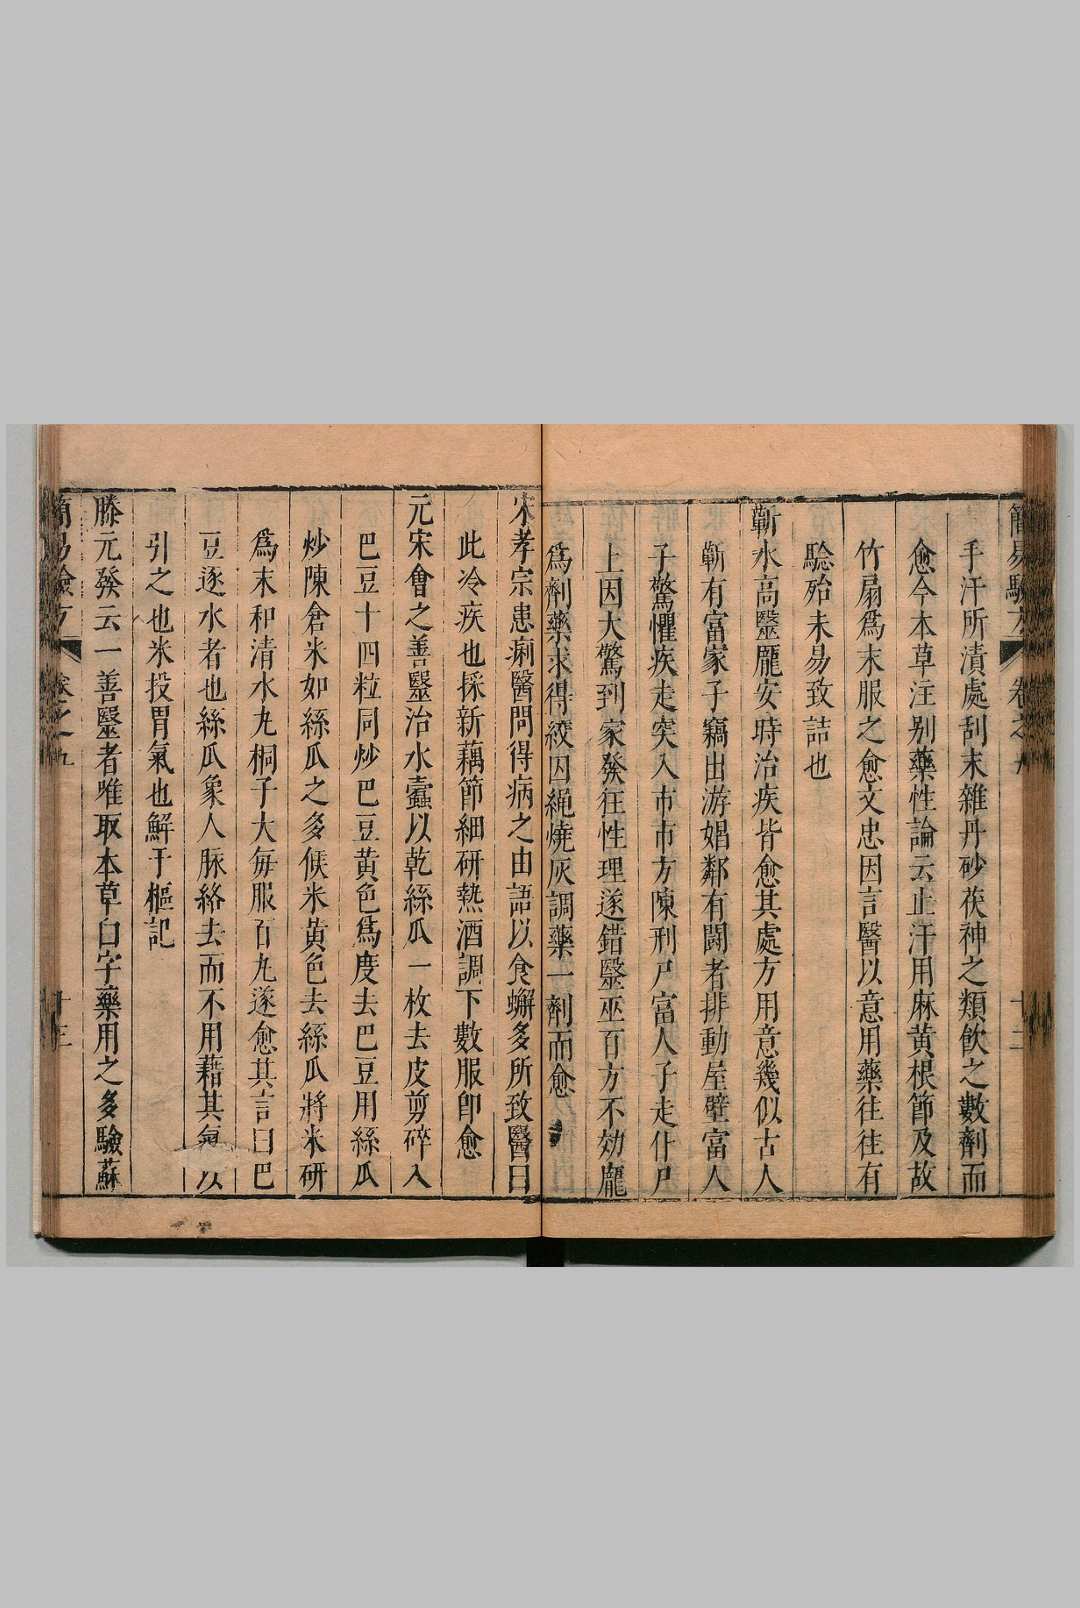 簡易驗方 卷之九 十二
手汗所漬處刮末雜丹砂茯神之類飲之數劑而
愈今本草注别藥性論云止汗用麻黄根節及故
竹扇爲末服之愈文忠因言醫以意用藥往往有
騐殆未易致詰也
蘄水高毉龐安時治疾皆愈其處方用意幾似古人
蘄有富家子竊出游娼鄰有鬪者排動屋壁富人
子驚懼疾走突入市市方陳刑尸富人子走仆尸
上因大驚到家發狂性理遂錯毉巫百方不効龐
爲劑藥求得絞囚繩燒灰調藥一劑而愈
宋孝宗患痢醫問得病之由語以食蠏多所致醫曰
此冷疾也採新藕節細研熱酒調下數服卽愈
元宋會之善毉治水蠱以乾絲瓜一枚去皮剪碎入
巴豆十四粒同炒巴豆黄色爲度去巴豆用絲瓜
炒陳倉米如絲瓜之多候米黄色去絲瓜將米研
爲末和清水丸桐子大毎服百丸遂愈其言曰巴
豆逐水者也絲瓜象人脉絡去而不用藉其氣以
引之也米投胃氣也鮮于樞記
滕元發云一善毉者唯取本草白字藥用之多驗蘇
簡易驗方 卷之九 十三